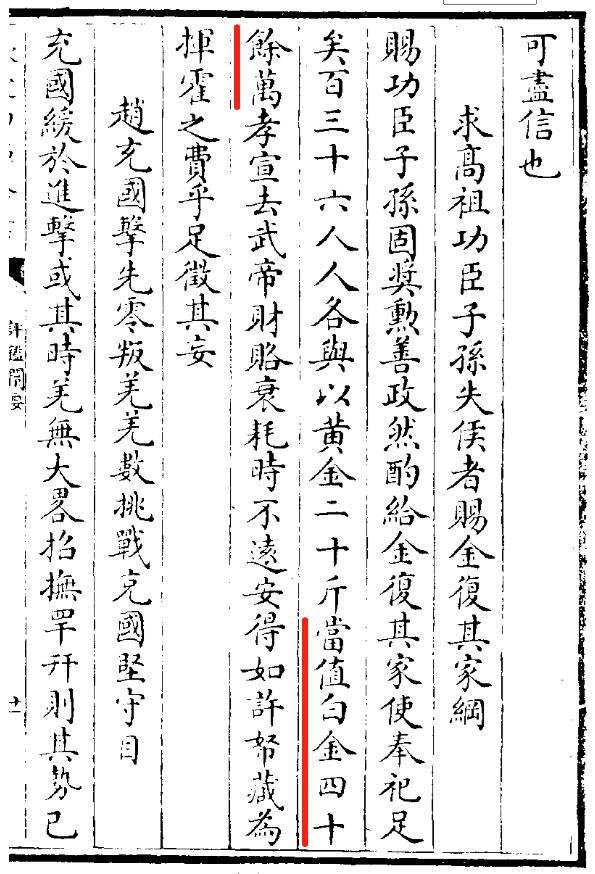 可盡信也
求高祖功臣子孫失侯者賜金復其家綱
賜功臣子孫固奨勲善政然酌給金復其家使奉祀足
矣百三十六人人各與以黄金二十斤當值白金四十
餘萬孝宣去武帝財賂衰耗時不遠安得如許帑藏為
揮霍之費乎足徵其妄
趙充國擊先零叛羌羌數挑戰充國堅守目
充國緩於進擊或其時羌無大畧招撫罕幵則其勢已
評鑑闡要
十一